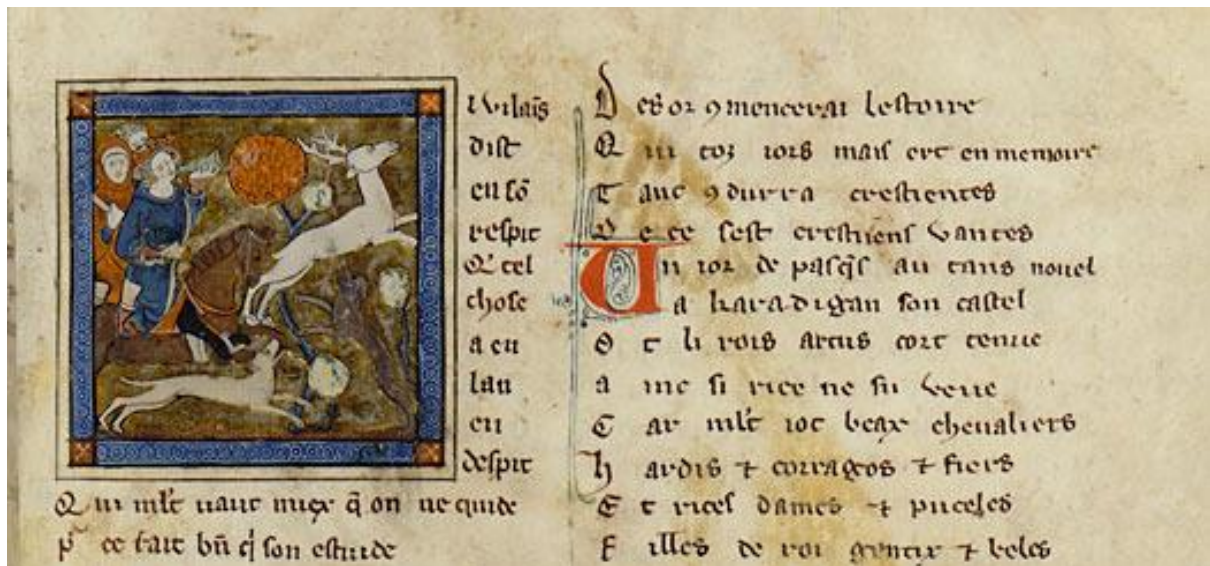 i vilains
dist
en sō
respit
Qͥ tel
chose
a en
lan
en
despit
Q ui ml't uaut miex q̄ on ne quide
p̲ ce fait bn̄ qi son estuide
D es or ꝯmencerai lestoire
Q ui toz iors mais ert en memoire
T ant ꝯ durra crestientes
D e ce sest crestiiens vantes
U n ior de pasqs au tans nouel
A karadigan son castel
O t li rois artus cort tenue
a inc si rice ne fu veue
C ar ml't iot beax cheualiers
h ardis ⁊ corragos ⁊ fiers
E t rices dames ⁊ puceles
F illes de roi gentix ⁊ beles